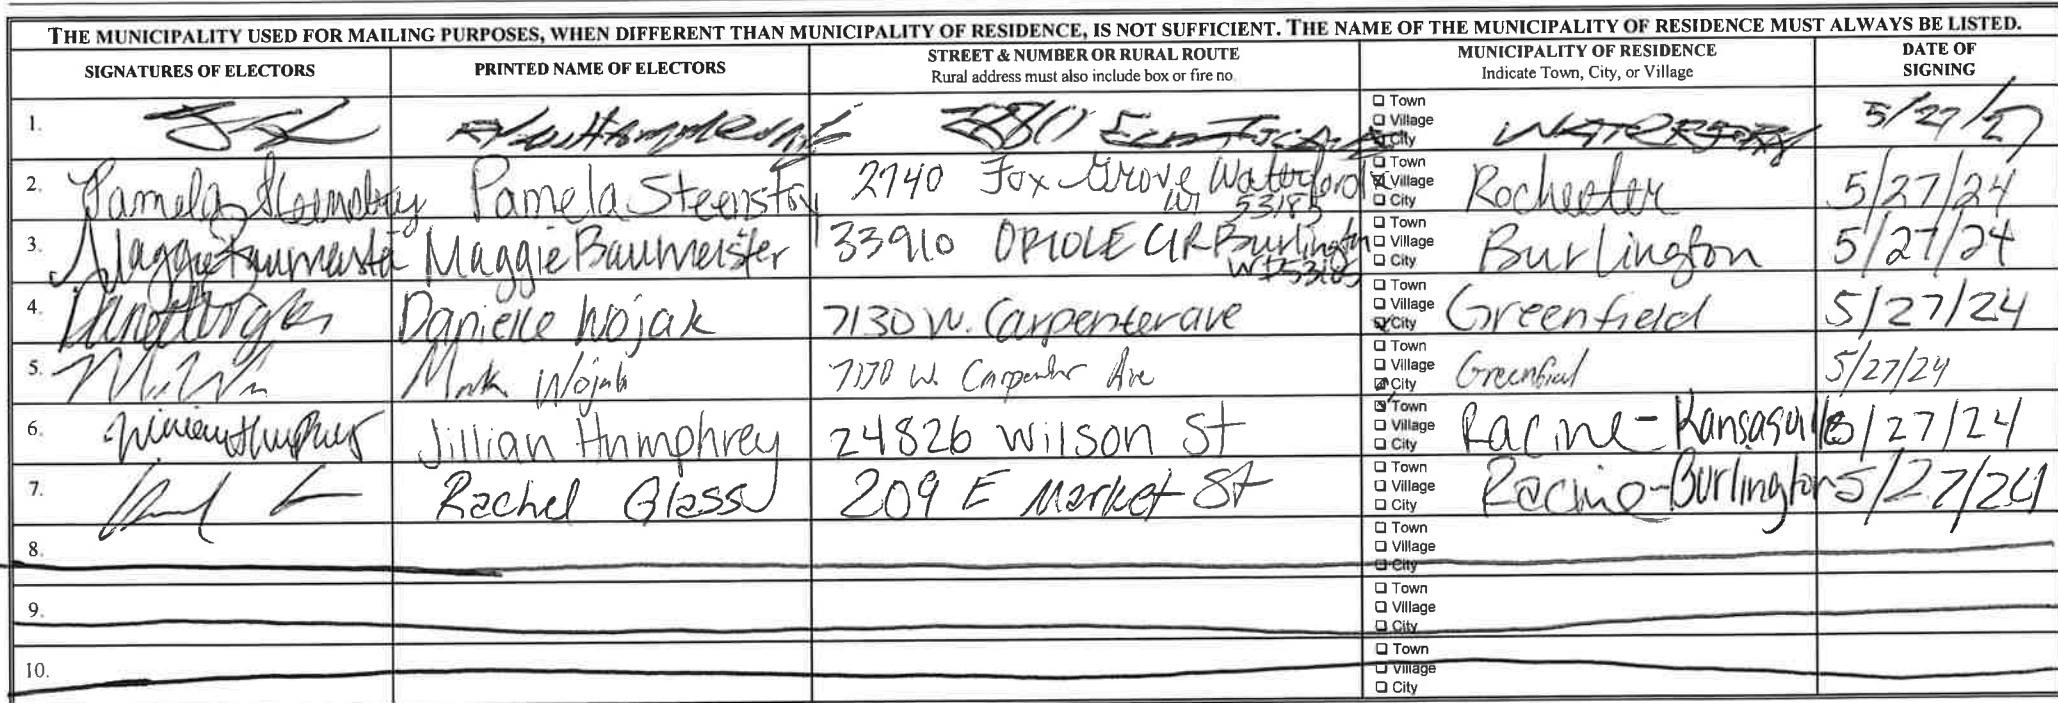 THE MUNICIPALITY USED FOR MAILING PURPOSES, WHEN DIFFERENT THAN MUNICIPALITY OF RESIDENCE, IS NOT SUFFICIENT. THE NAME OF THE MUNICIPALITY OF RESIDENCE MUST ALWAYS BE LISTED.
SIGNATURES OF ELECTORS
PRINTED NAME OF ELECTORS
STREET & NUMBER OR RURAL ROUTE
Rural address must also include box or fire no.
MUNICIPALITY OF RESIDENCE
Indicate Town, City, or Village
DATE OF
SIGNING
1. Town
Village
City
WATERFORD 5/27/27
2. Pamela Steenstry Pamela Steenstry 2740 Fox Grove Waterford
WI 53185
Town
Village
City
Rochester 5/27/24
3. Maggie Baumeister Maggie Baumeister 33910 ORIOLE CIR Burlington
WI 53185
Town
Village
City
Burlington 5/27/24
4. Danielle Wojak 7130 W. Carpenter ave
Town
Village
City
Greenfield 5/27/24
5. Mark Wojak 7130 W. Carpenter Ave
Town
Village
City
Greenfield 5/27/24
6. Jillian Humphrey Jillian Humphrey 24826 Wilson St
Town
Village
City
Racine-Kansasville 5/27/24
7. Rachel Glass 209 E Market St
Town
Village
City
Racine-Burlington 5/27/24
8. Town
Village
City
9. Town
Village
City
10. Town
Village
City